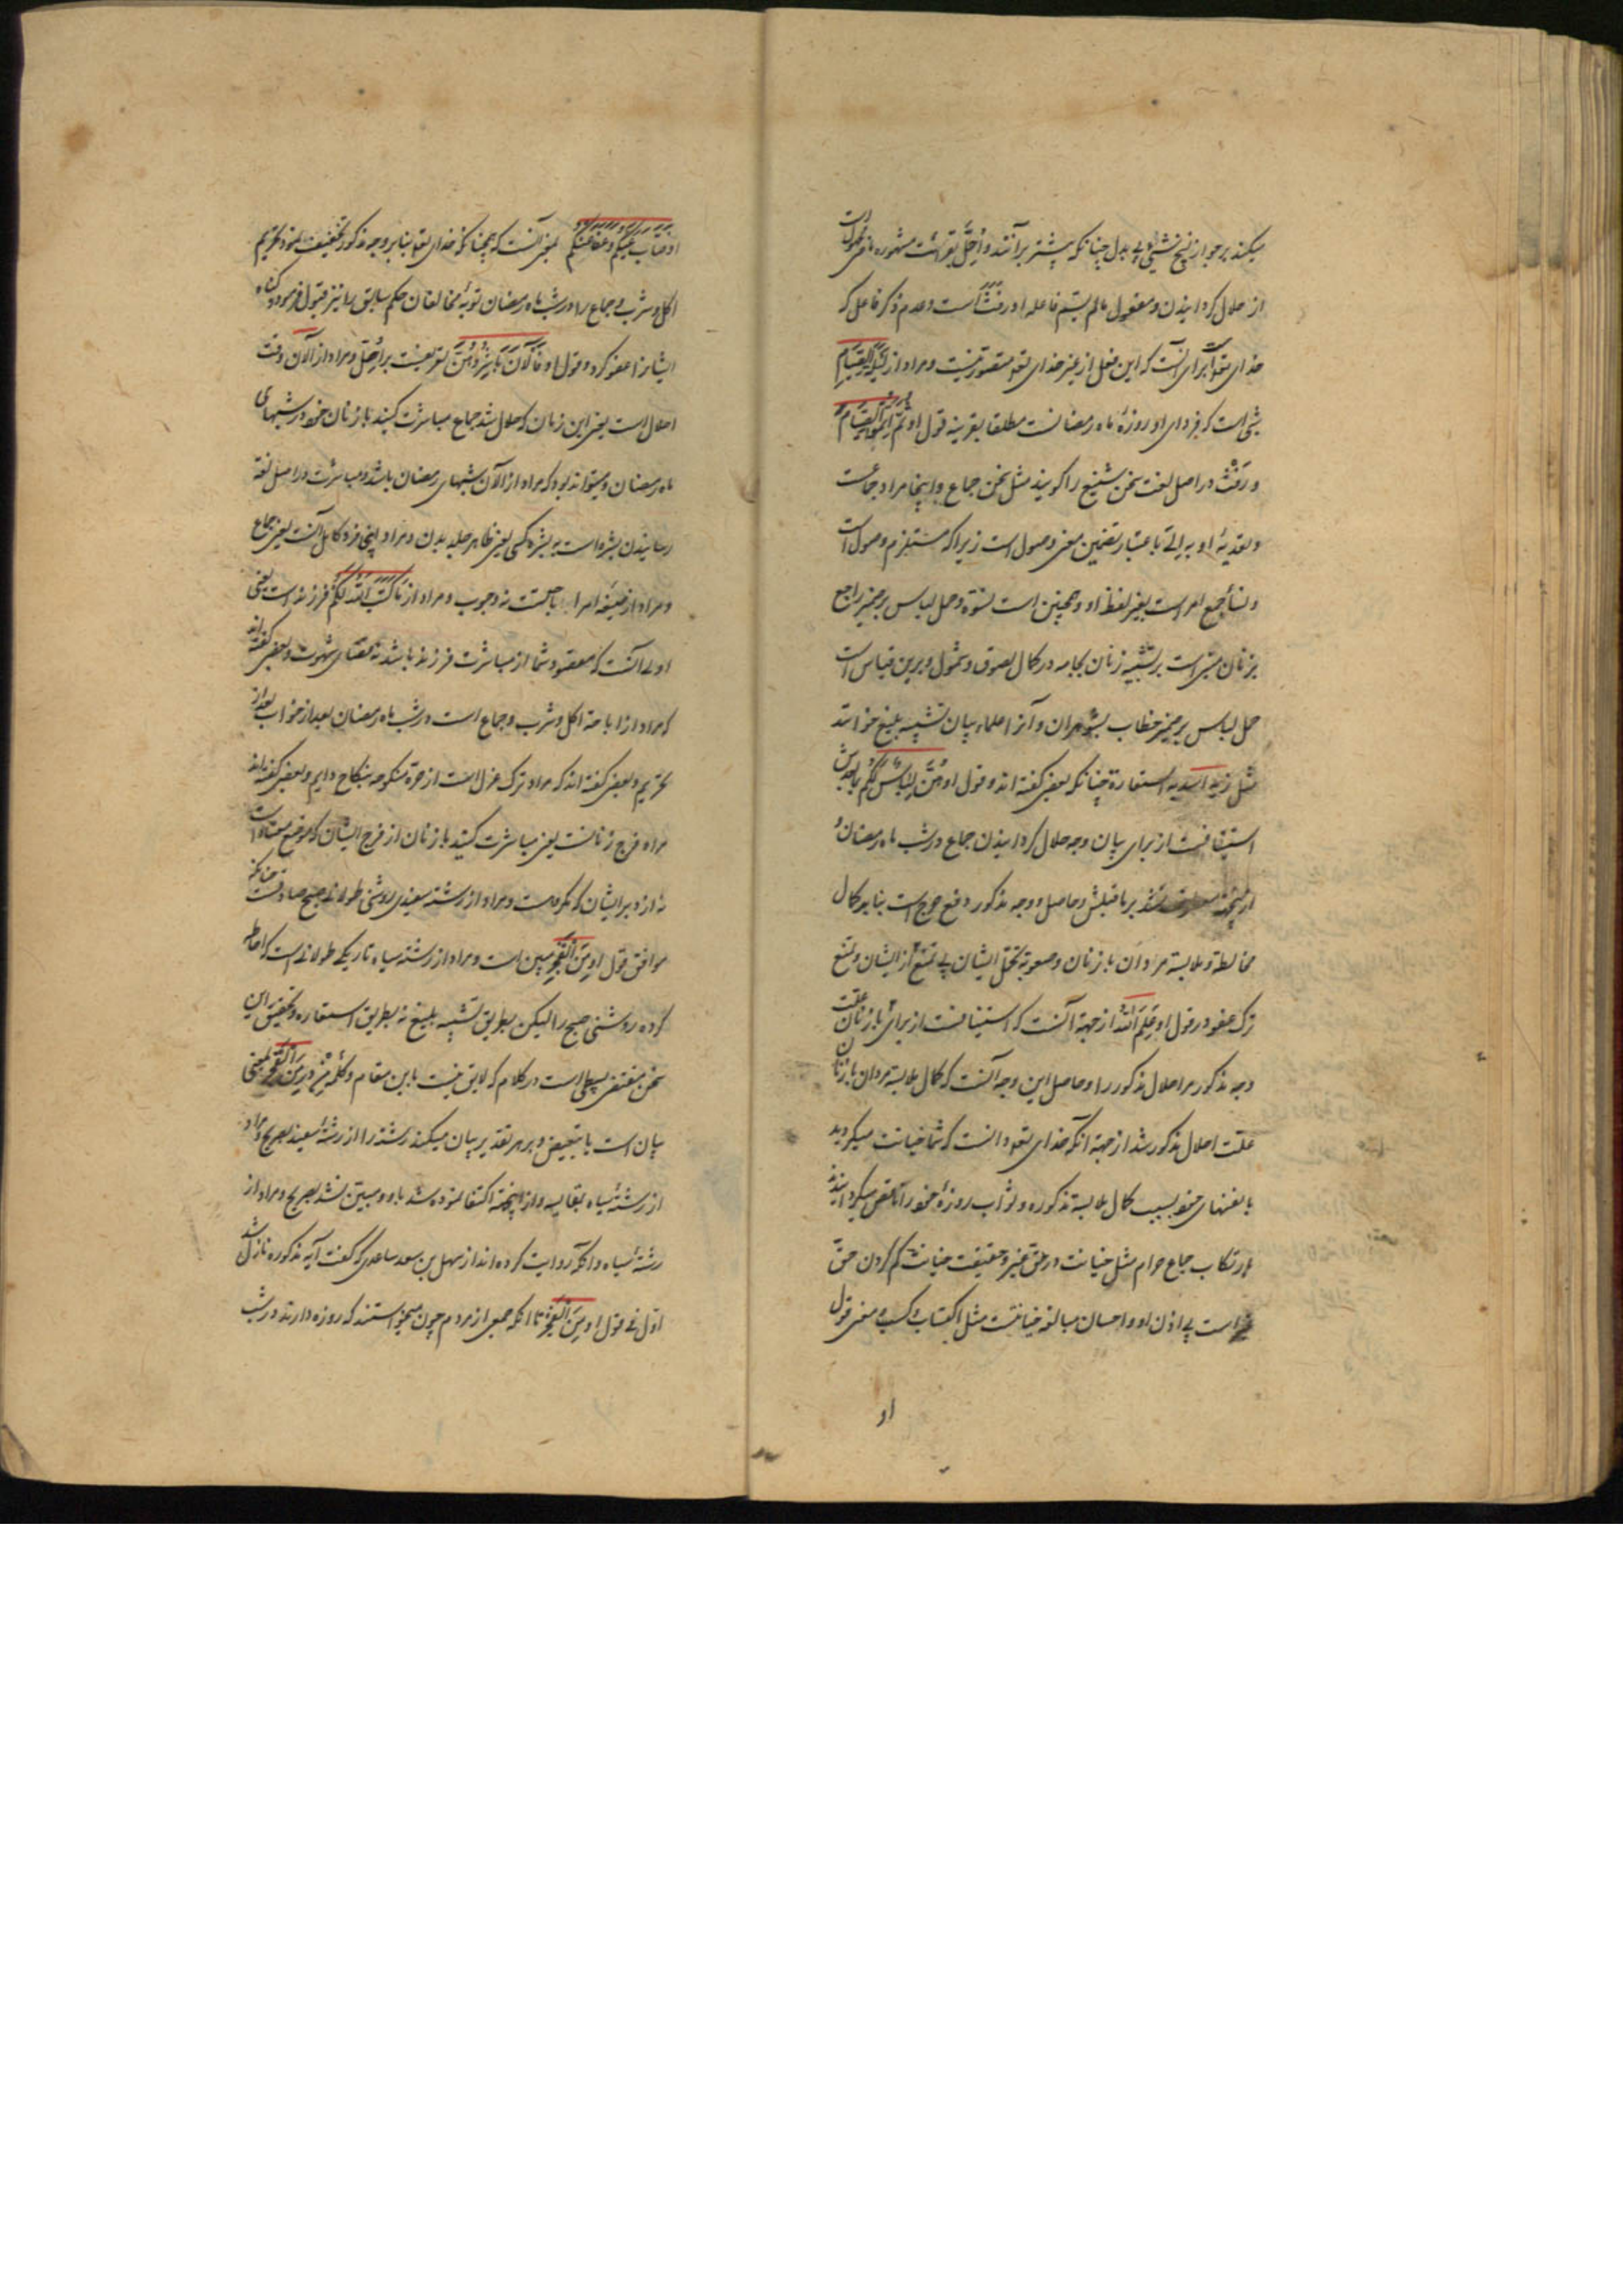 میکند بر جواز نسخ شیئی بی بدل چنانکه بیشتر برآنند و اُحِلَّ بقرائت مشهوره ماضی مجهول است
از حلال کردانیدن و مفعول مالم یسم فاعله او رفث است و عدم ذکر فاعل که
خدای تعالی است برای آنست که این فعل از غیر خدای تعالی مقصور نیست و مراد از لَیْلَةَ الصِّیَامِ
شبی است که فردای او روزهٔ ماه رمضانست مطلقا بقرینه قول او ثُمَّ اَتِمُّوا الصِّیَامَ
و رَفَثْ در اصل لغت سخن شنیع را کویند مثل سخن جماع و اینجا مراد جماعت
و تعدیهٔ او به الی باعتبار تضمین معنی وصول است زیرا که مستلزم وصول است
و نسأ جمع امراست بغیر لفظ او و همچنین است نسوة و حمل لباس بر ضمیر راجع
بزنان مبتنی است بر تشبیه زنان بجامه در کمال لصوق و شمول و برین قیاس است
حمل لباس بر ضمیر خطاب بشوهران و آنرا علماء بیان تشبیه بلیغ خوانند
مثل زید اسد نه استعارة چنانکه بعضی کفته اند و قول او هُنَّ لِبَاسٌ لَکُم تا بعدش
استینافست از برای بیان وجه حلال کردانیدن جماع در شب ماه رمضان و
ازینجهة معطوف نشد بر ماقبلش و حاصل وجه مذکور دفع حرج است بنابر کمال
مخالطة و ملابسة مردان با زنان و صعوبة تحمل ایشان بی تمتع از ایشان و تمتع
ترک عطف در قول او عَلِمَ اللهُ از جهة آنست که استینافست از برای علت
وجه مذکور مر احلال مذکور را و حاصل این وجه آنست که کمال ملابسة مردان با زنان
علت احلال مذکور شد از جهة آنکه خدای تعالی دانست که شما خیانت میکردید
با نفسهای خود بسبب کمال ملابسة مذکوره و ثواب روزهٔ خود را ناقص میکردانیدید
بارتکاب جماع حرام مثل خیانت در حق غیر و حقیقت خیانت کم کردن حق
غیر است بی اذن او و احسان مبالغه خیانتست مثل اکتساب و کسب و معنی قول
او
او فَتَابَ عَلَیْکُمْ وَعَفَا عَنْکُمْ یعنی آنست که چنانکه خدای تعالی بنابر وجه مذکور تخفیف نمود تحریم
اکل و شرب و جماع را در شب ماه رمضان توبهٔ مخالفان حکم سابق را نیز قبول فرمود و کناه
ایشانرا عفو کرد و قول او فَالْآنَ بَاشِرُوهُنَّ تفریعست بر اُحِلَّ و مراد از الآن وقت
احلال است یعنی این زمان که حلال شد جماع مباشرت کنید با زنان خود در شبهای
ماه رمضان و میتواند بود که مراد از الآن شبهای رمضان باشد و مباشرت در اصل لغة
رسانیدن بشره است به بشره کسی یعنی ظاهر جلد بدن و مراد اینجا فرد کامل آنست یعنی جماع
و مراد از صیغه امر اباحتست نه وجوب و مراد از مَا کَتَبَ اللهُ لَکُمْ فرزند است یعنی
اولی آنست که مقصود شما از مباشرت فرزند باشد نه قضای شهوت و بعضی کفته اند
که مراد از اباحة اکل و شرب و جماع است در شب ماه رمضان بعد از خواب بعد از
تحریم و بعضی کفته اند که مراد ترک عزل است از حرة منکوحه بنکاح دایم و بعضی کفته اند
مراد فرج زنانست یعنی مباشرت کنید با زنان از فرج ایشان که موضع معتاد است
نه از دبر ایشان که مکروهست و مراد از رشتة سفید روشنی طولانی صبح صادقست چنانکه
موافق قول او مِنَ الْفَجْرِ مبین است و مراد از رشتة سیاه تاریکی طولانی است که احاطه
کرده روشنی صبح را لیکن بطریق تشبیه بلیغ نه بطریق استعاره و تحقیق این
سخن مقتضی بسطی است در کلام که لایق نیست باین مقام و کلمه من در مِنَ الْفَجْرِ بمعنی
بیان است یا تبعیض و بر هر تقدیر بیان میکند رشتة را از رشتة سفید بصریح و مراد
از رشتة سیاه بمقایسه و از اینجهة اکتفا نموده شد باو و مبین نشد بصریح و مراد از
رشتة سیاه و آنکه روایت کرده اند از سهل بن سعد ساعدی که کفت آیه مذکوره نازل شد
اول بی قول او مِنَ الْفَجْرِ تا آنکه جمعی از مردم چون میخواستند که روزه دارند در شب